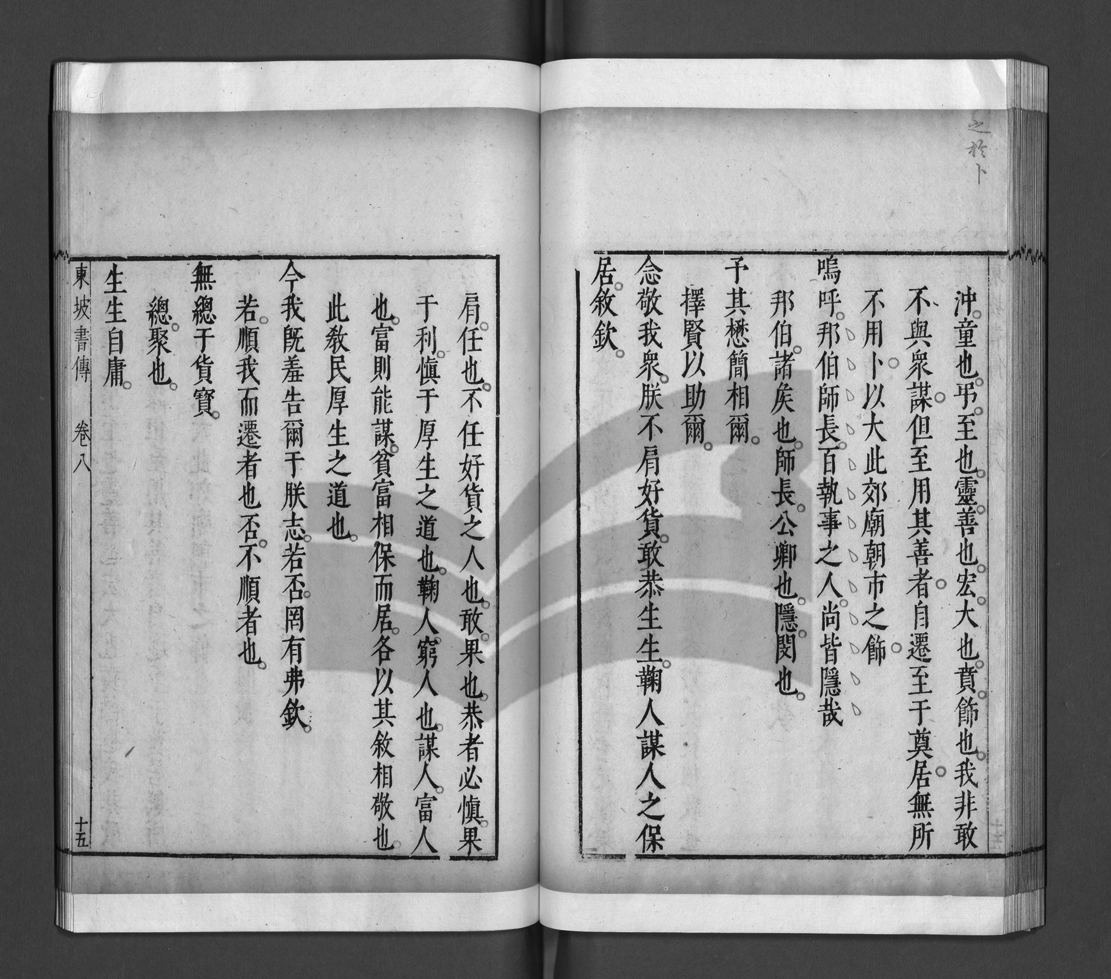 之於卜
沖童也弔至也靈善也宏大也賁飾也我非敢
不與衆謀但至用其善者自遷至于奠居無所
不用卜以大此郊廟朝市之飾
嗚呼邦伯師長百執事之人尚皆隱哉
邦伯諸矦也師長公卿也隱閔也
予其懋簡相爾
擇賢以助爾
念敬我衆朕不肩好貨敢恭生生鞠人謀人之保
居敘欽
肩任也不任好貨之人也敢果也恭者必愼果
于利愼于厚生之道也鞠人窮人也謀人富人
也富則能謀貧富相保而居各以其敘相敬也
此敎民厚生之道也
今我旣羞告爾于朕志若否罔有弗欽
若順我而遷者也否不順者也
無總于貨寶
總聚也
生生自庸
東坡書傳 卷八 十五